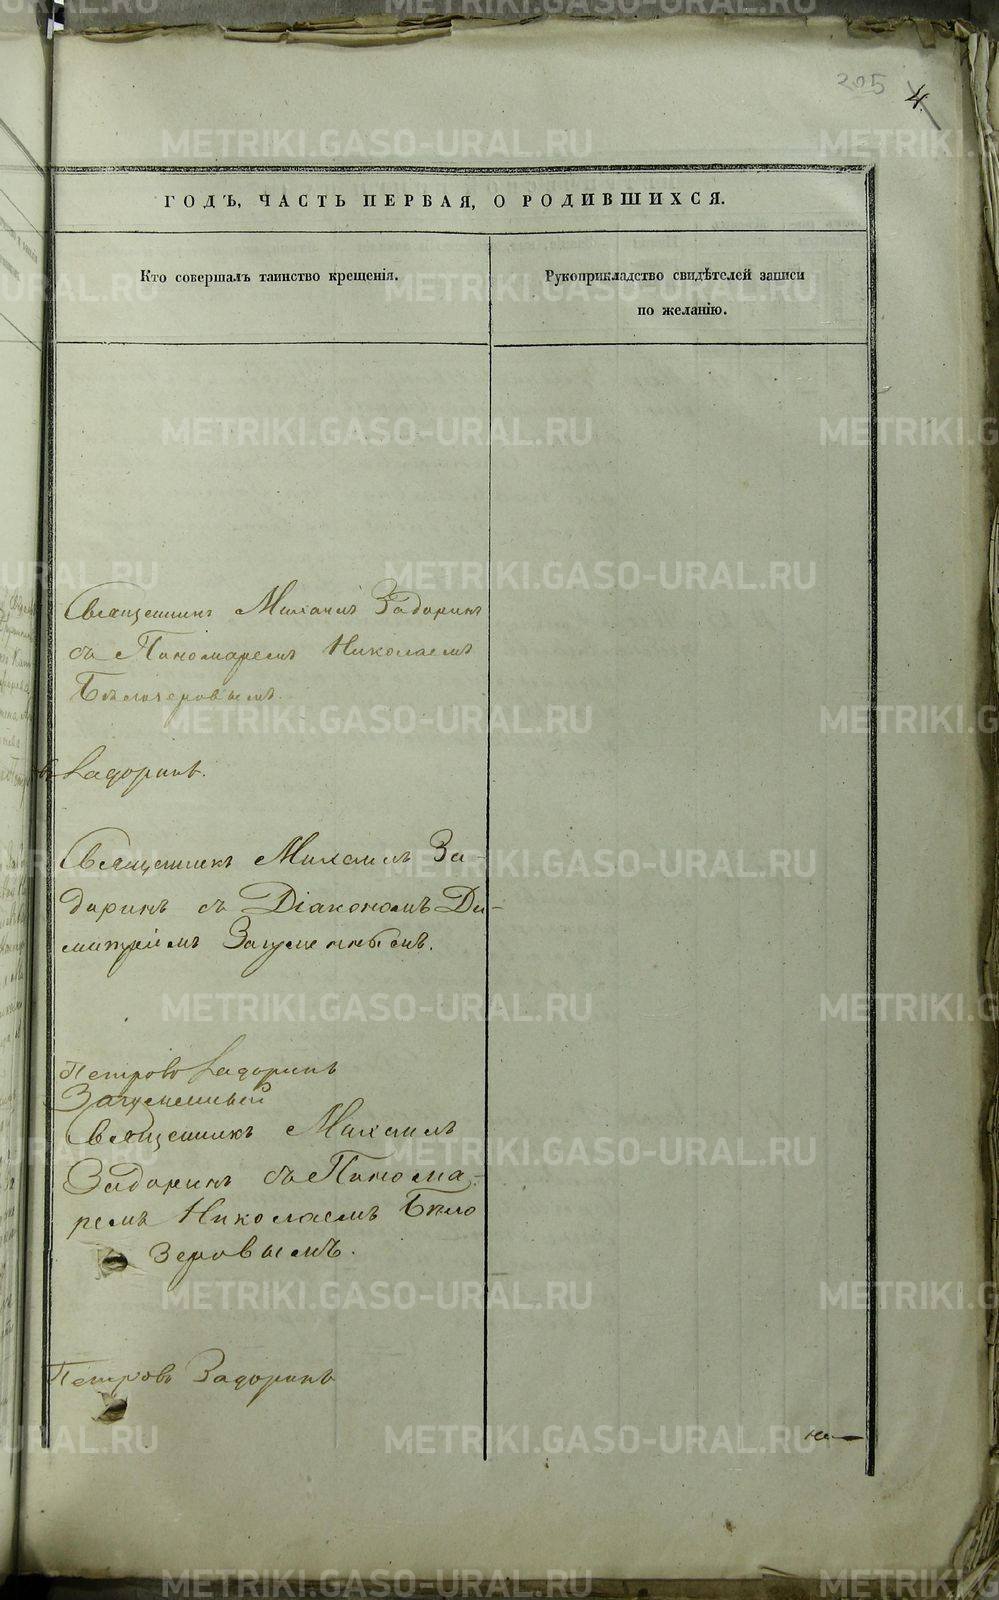 205 4
ГОДЪ, ЧАСТЬ ПЕРВАЯ, О РОДИВШИХСЯ.
Кто совершалъ таинство крещенія.
Рукоприкладство свидѣтелей записи
по желанію.
Священникъ Михаилъ Задоринъ
съ Пономаремъ Николаемъ
Бѣлозеровымъ.
Задоринъ.
Священникъ Михаилъ За-
доринъ съ Діакономъ Ди-
митріемъ Загуменнымъ.
Петровъ Задоринъ
Загуменный
Священникъ Михаилъ
Задоринъ съ Понома-
ремъ Николаемъ Бѣло
зеровымъ.
Петровъ Задоринъ
METRIKI.GASO-URAL.RU